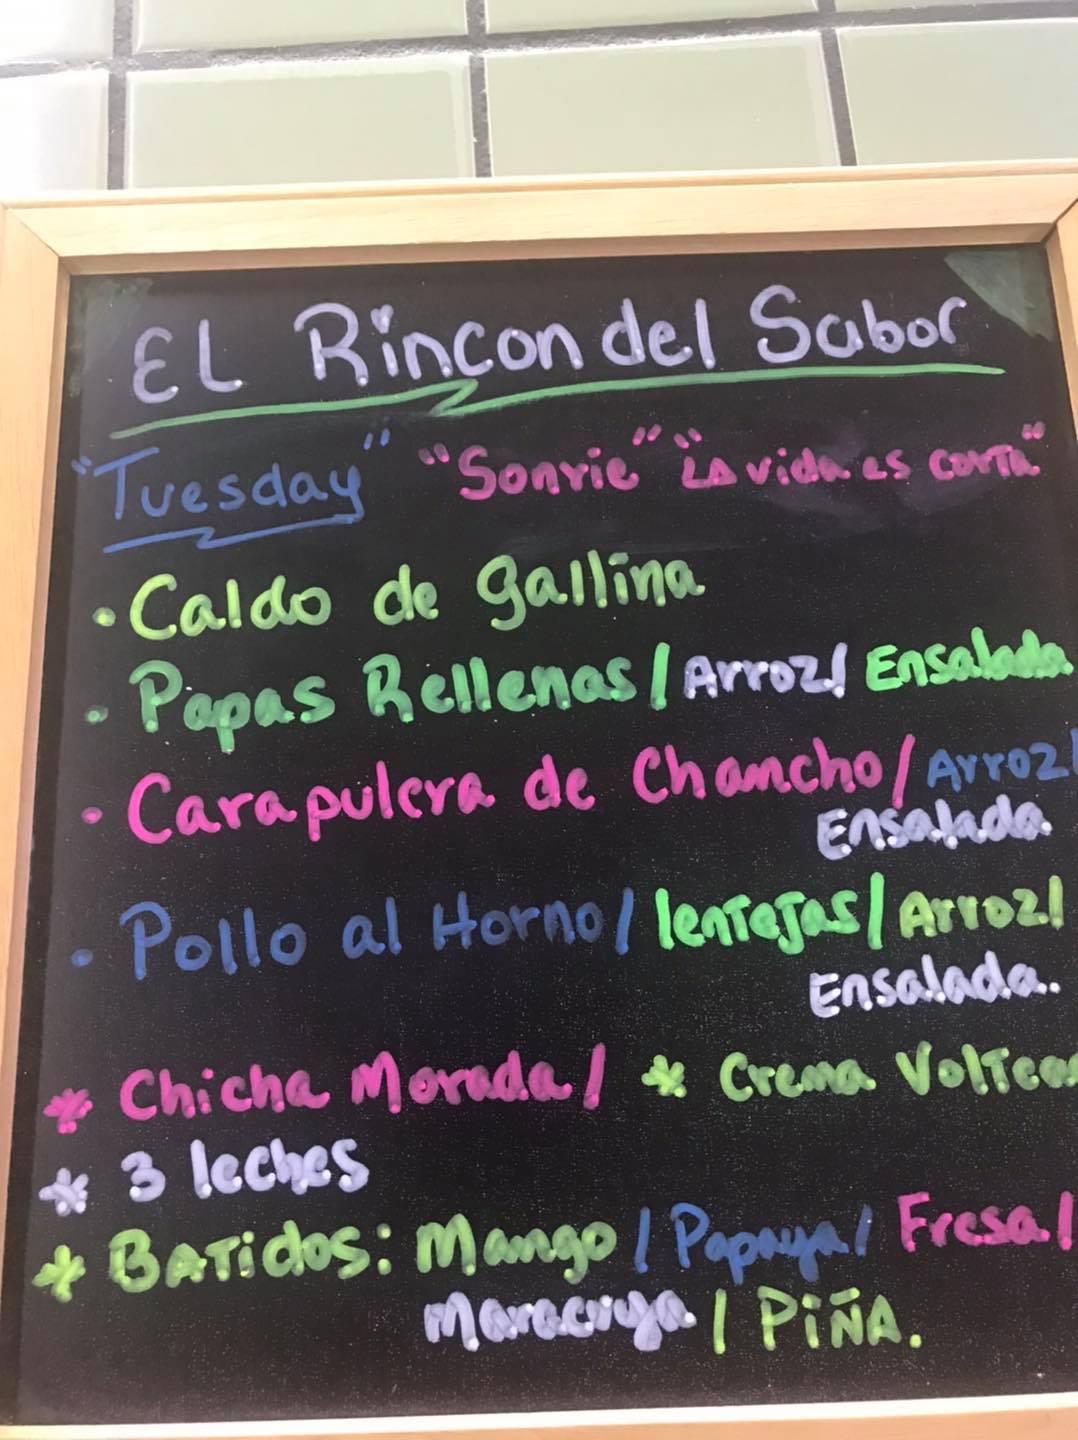 EL Rincon del Sabor
"Tuesday" "Sonrie" "La vida es corta"
· Caldo de gallina
· Papas Rellenas / Arroz / Ensalada
· Carapulcra de Chancho / Arroz /
Ensalada
· Pollo al Horno / lentejas / Arroz /
Ensalada..
* Chicha Morada / * Crema Voltea
* 3 leches
* Batidos: Mango / Papaya / Fresa /
Maracuya / Piña.